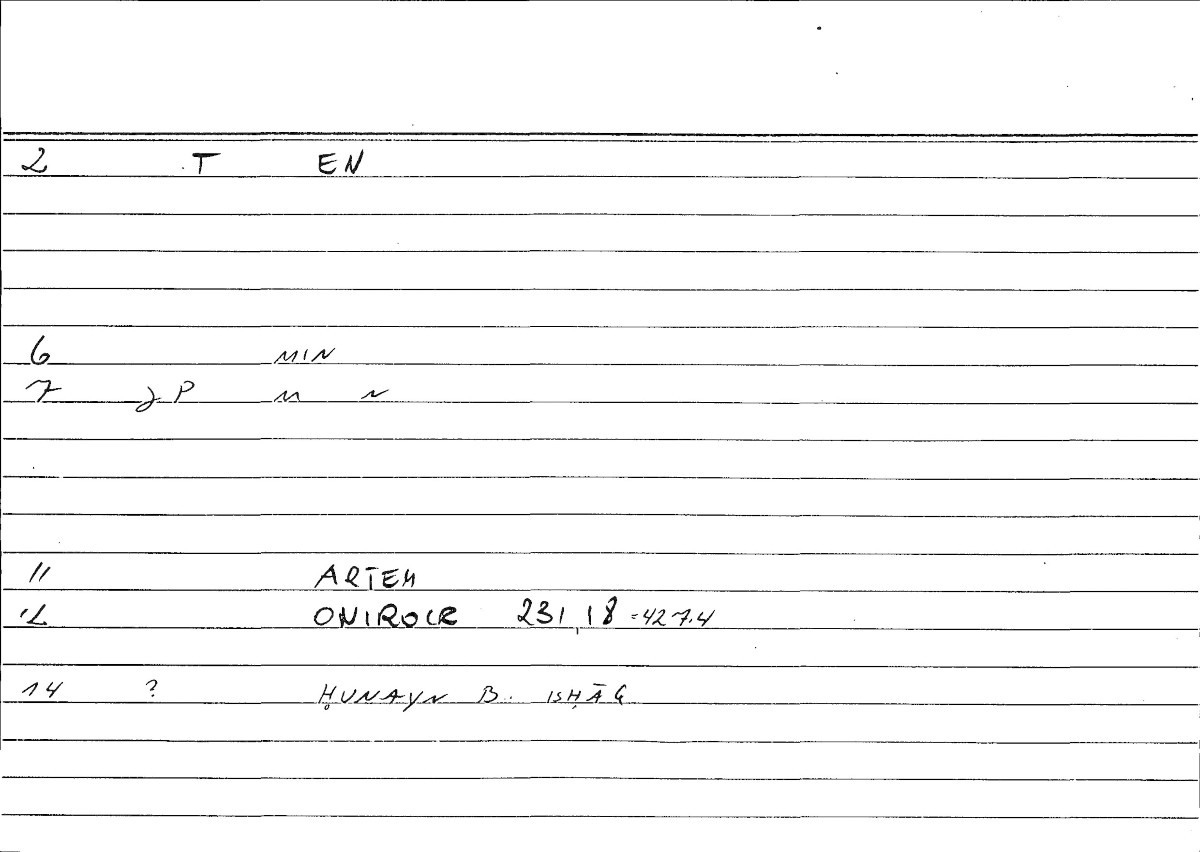 2 T EN
6 MIN
7 P M N
11 ARTEM
12 ONIROCR 231,18 =427.4
14 ? ḤUNAYN B. ISḤĀQ